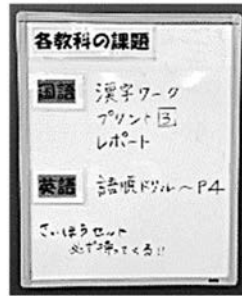 各教科の課題
国語 漢字ワーク
プリント3
レポート
英語 語順ドリル〜P4
さいほうセット
必ず持ってくる!!